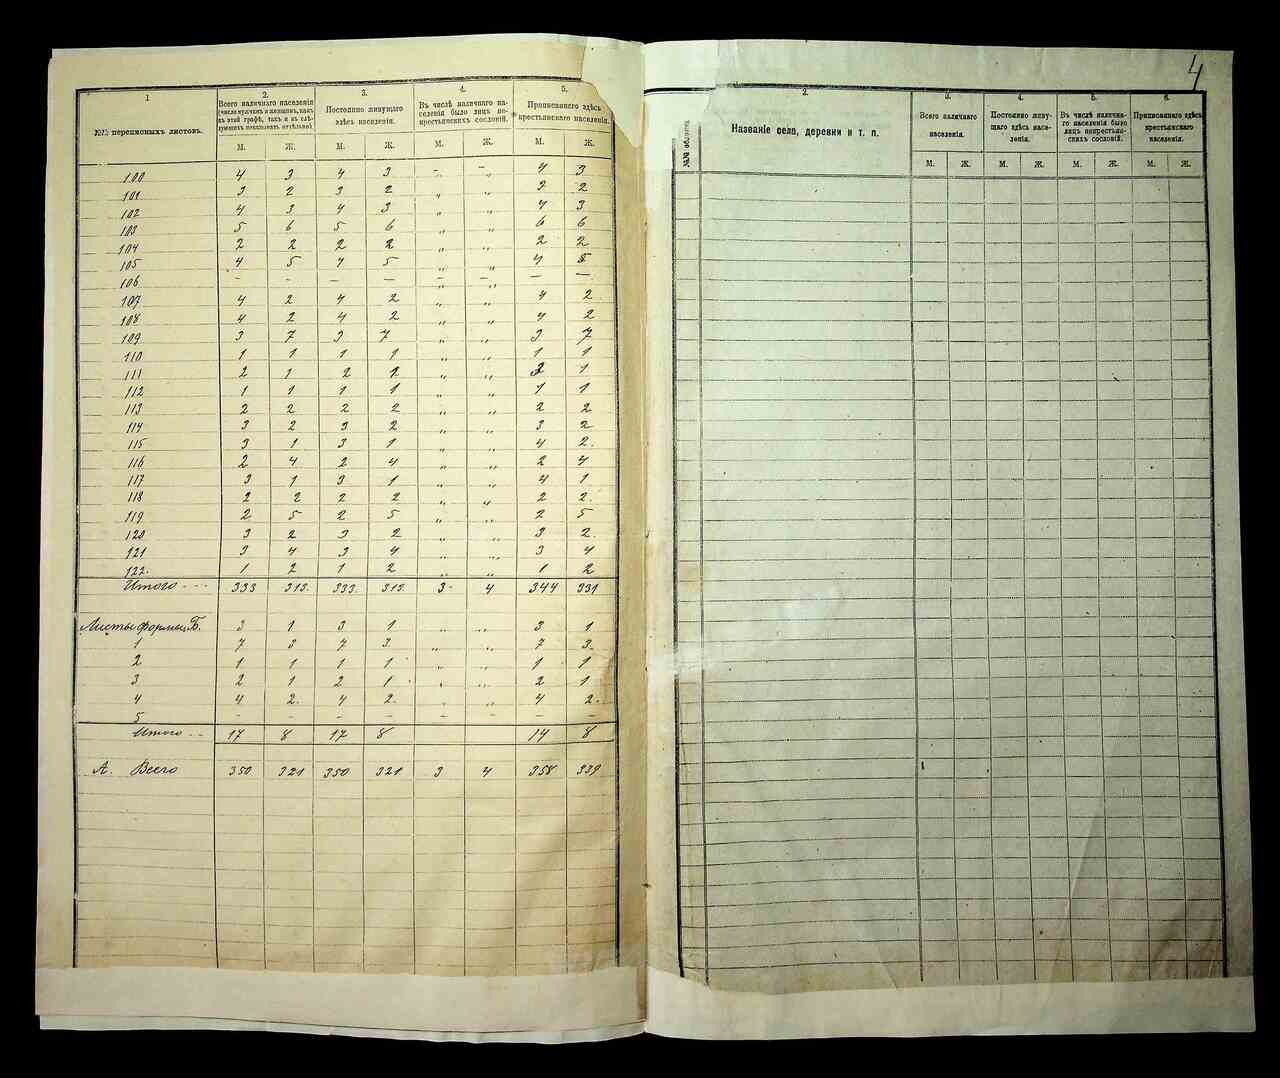 1
2.
3.
4.
5.
№№ переписныхъ листовъ.
Всего наличнаго населенія
(число мужчинъ и женщинъ, какъ
въ этой графѣ, такъ и въ слѣ-
дующихъ показывать отдѣльно)
Постоянно живущаго
здѣсь населенія.
Въ числѣ наличнаго на-
селенія было лицъ не-
крестьянскихъ сословій.
Приписаннаго здѣсь
крестьянскаго населенія.
М. Ж. М. Ж. М. Ж. М. Ж.
100 4 3 4 3 - „ 4 3
101 3 2 3 2 „ „ 3 2
102 4 3 4 3 „ „ 4 3
103 5 6 5 6 „ „ 6 6
104 2 2 2 2 „ „ 2 2
105 4 5 4 5 „ „ 4 5
106 - - - - - - - -
107 4 2 4 2 „ „ 4 2
108 4 2 4 2 „ „ 4 2
109 3 7 3 7 „ „ 3 7
110 1 1 1 1 „ „ 1 1
111 2 1 2 2 „ „ 2 1
112 1 1 1 1 „ „ 1 1
113 2 2 2 2 „ „ 2 2
114 3 2 3 2 „ „ 3 2
115 3 1 3 1 „ „ 4 2.
116 2 4 2 4 „ „ 2 4
117 3 1 3 1 „ „ 4 1
118 2 2 2 2 „ „ 2 2.
119 2 5 2 5 „ „ 2 5
120 3 2 3 2 „ „ 3 2.
121 3 4 3 4 „ „ 3 4
122. 1 2 1 2 „ „ 1 2
Итого - - - 333 313. 333. 313. 3 4 344 331
Листы формы Б. 3 1 3 1 „ „ 3 1
1 7 3 7 3. „ „ 7 3.
2 1 1 1 1 „ „ 1 1
3 2 1 2 1 „ „ 2 1
4 4 2. 4 2. „ „ 4 2.
5 - - - - - - - -
Итого - - 17 8 17 8 14 8
А. Всего 350 321 350 321 3 4 358 339
4
2.
3.
4.
5.
6.
Названіе села, деревни и т. п.
Всего наличнаго
населенія.
Постоянно живу-
щаго здѣсь насе-
ленія.
Въ числѣ налична-
го населенія было
лицъ некрестьян-
скихъ сословій.
Приписаннаго здѣсь
крестьянскаго
населенія.
М. Ж. М. Ж. М. Ж. М. Ж.